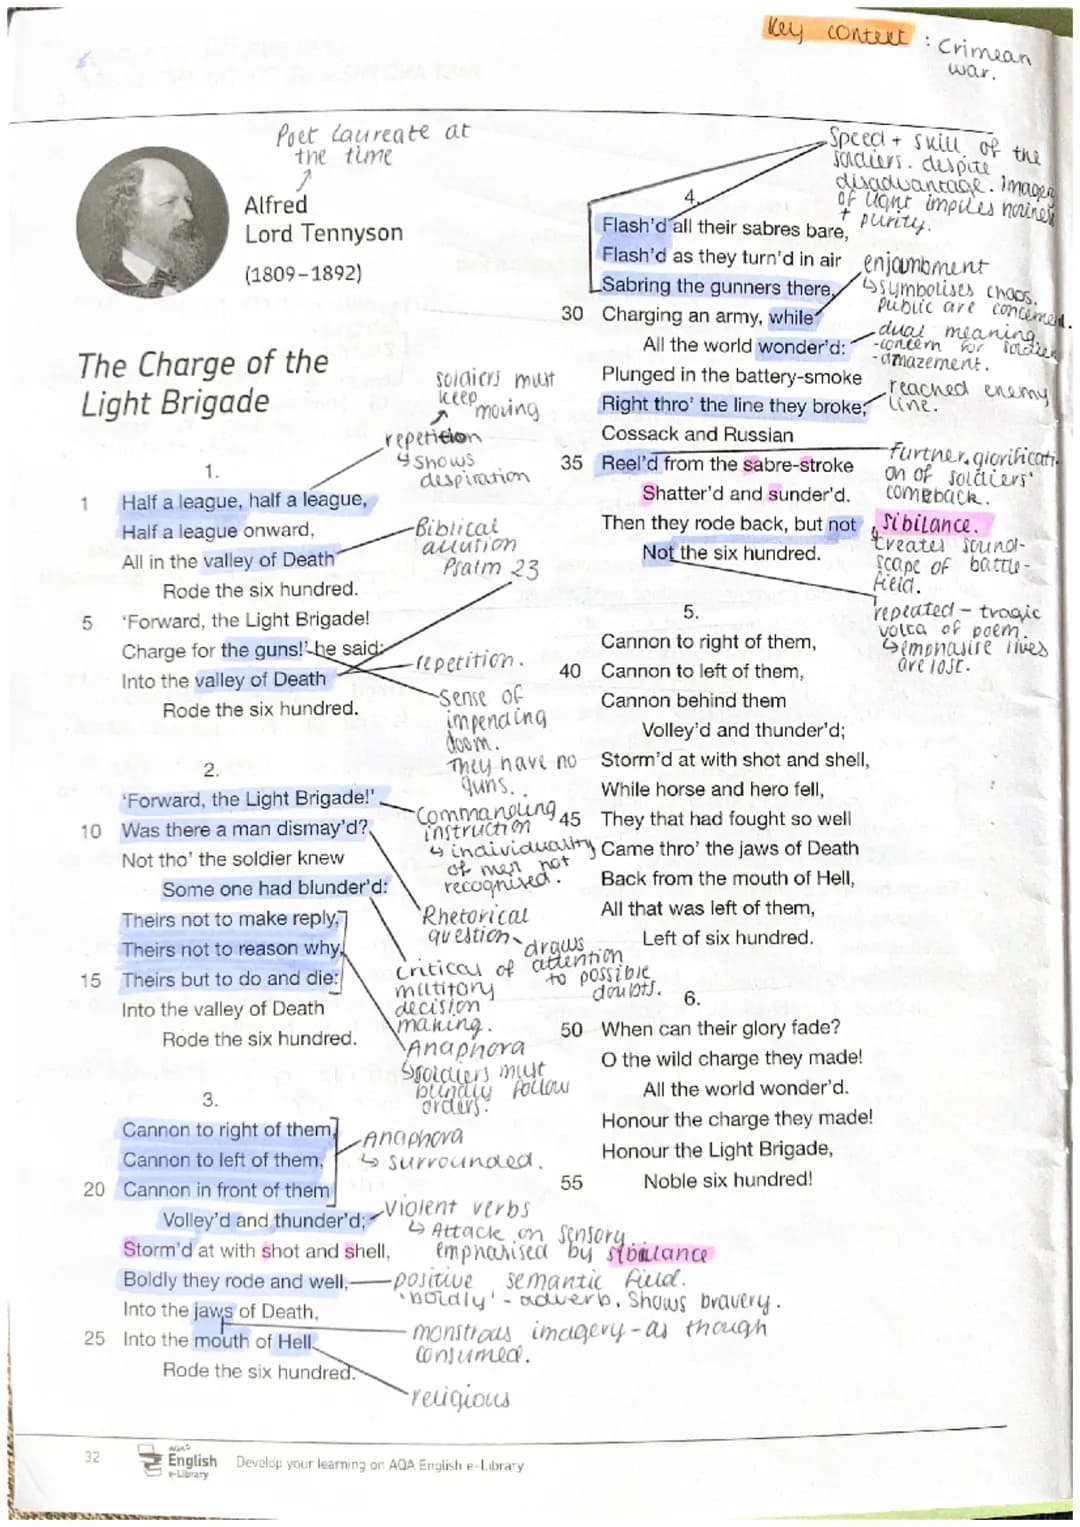 Key context : Crimean
war.
Poet Laureate at
the time
Alfred
Lord Tennyson
(1809–1892)
The Charge of the
Light Brigade
soldiers must
keep
moving
repetition
↳ shows
despiration
1.
1 Half a league, half a league,
Half a league onward,
All in the valley of Death
Rode the six hundred.
Biblical
allution
Psalm 23
5 'Forward, the Light Brigade!
Charge for the guns!' he said:
Into the valley of Death
Rode the six hundred.
repetition.
Sense of
impending
doom.
They have no
guns.
2.
'Forward, the Light Brigade!'
10 Was there a man dismay'd?
Not tho' the soldier knew
Some one had blunder'd:
Theirs not to make reply,
Theirs not to reason why,
15 Theirs but to do and die:
Into the valley of Death
Rode the six hundred.
Commanding
instruction
↳ individuality
of men not
recognised.
Rhetorical
question
draws
attention
to possible
doubts.
critical of
military
decision
making.
Anaphora
↳ soldiers must
blindly follow
orders.
3.
Cannon to right of them,
Cannon to left of them,
20 Cannon in front of them
Volley'd and thunder'd;
Storm'd at with shot and shell,
Boldly they rode and well,
Into the jaws of Death,
25 Into the mouth of Hell
Rode the six hundred.
Anaphora
↳ surrounded.
violent verbs
↳ Attack on sensory.
emphasised by sibilance
positive semantic field.
'boldly' - adverb. Shows bravery.
monstrous imagery - as though
consumed.
religious
4.
Flash'd all their sabres bare,
Flash'd as they turn'd in air
Sabring the gunners there,
30 Charging an army, while
All the world wonder'd:
Plunged in the battery-smoke
Right thro' the line they broke;
Cossack and Russian
35 Reel'd from the sabre-stroke
Shatter'd and sunder'd.
Then they rode back, but not
Not the six hundred.
Speed + skill of the
soldiers. despite
disadvantage.
of light implies
+ purity.
enjambment
↳ symbolises chaos.
public are concerned.
dual meaning
- concern for
- amazement.
reached enemy
line.
Further glorificati-
on of soldiers'
comeback.
sibilance.
creates sound-
scape of battle-
field.
repeated - tragic
volta of poem.
↳ emphasise lives
are lost.
5.
Cannon to right of them,
40 Cannon to left of them,
Cannon behind them
Volley'd and thunder'd;
Storm'd at with shot and shell,
While horse and hero fell,
45 They that had fought so well
Came thro' the jaws of Death
Back from the mouth of Hell,
All that was left of them,
Left of six hundred.
6.
50 When can their glory fade?
O the wild charge they made!
All the world wonder'd.
Honour the charge they made!
Honour the Light Brigade,
55 Noble six hundred!
32
AQA
English
e-Library
Develop your learning on AQA English e-Library